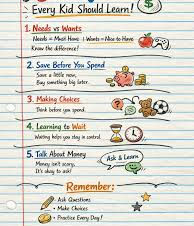 Every Kid Should Learn!
1. Needs vs Wants
Needs = Must Have | Wants = Nice to Have
Know the difference!
2. Save Before You Spend
Save a little now,
Buy something big later.
3. Making Choices
Think before you spend.
4. Learning to Wait
Waiting helps you stay in control.
5. Talk About Money
Money isn't scary,
It's okay to ask!
Ask & Learn
Remember:
Ask Questions
Make Choices
Practice Every Day!